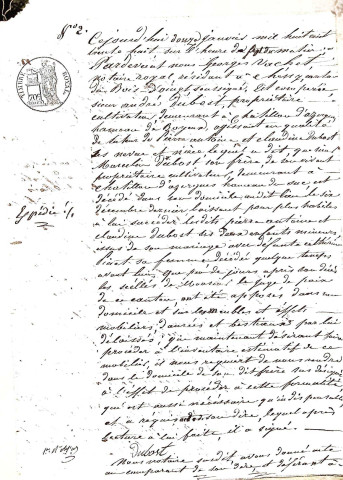 N° 2.
Cejourd'hui douze janvier mil huit cent
trente huit sur l'heure de sept du matin
Pardevant nous Georges Vachot,
notaire royal, résidant à canton
du Bois d'Oingt soussigné, est comparu
sieur André Dubost, propriétaire
cultivateur, demeurant à Chatillon d'azergues
hameau de agissant en qualité
de tuteur de Pierre antoine et claudine dubost
ses neveu et nièce lequel a dit que sieur
Marcelin Dubost son frère, de son vivant
propriétaire cultivateur, demeurant à
Chatillon d'azergues hameau du suc, est
décédé dans son domicile audit lieu le six
décembre dernier laissant pour plus habiles
à lui succéder lesdits pierre antoine et
claudine dubost ses deux enfants mineurs
issus de son mariage avec défunte catherine
sa femme décédée quelque temps
avant lui, que peu de jours après son décès
les scellés de Monsieur le juge de paix
de ce canton, ont été apposés dans son
domicile et sur les meubles et effets
mobiliers, denrées et bestiaux par lui
délaissés, que maintenant désirant faire
procéder à l'inventaire estimatif de ce
mobilier, il nous requiert de nous rendre
dans le domicile de son dit frère sus désigné
à l'effet de procéder à cette formalité
qui est aussi nécessaire qu'indispensable
et a requis de son dire, lequel après
lecture à lui faite, il a signé.
Dubost
Nous notaire susdit avons donné acte
au comparant de son dire, et déférant à
Expédié
TIMBRE ROYAL